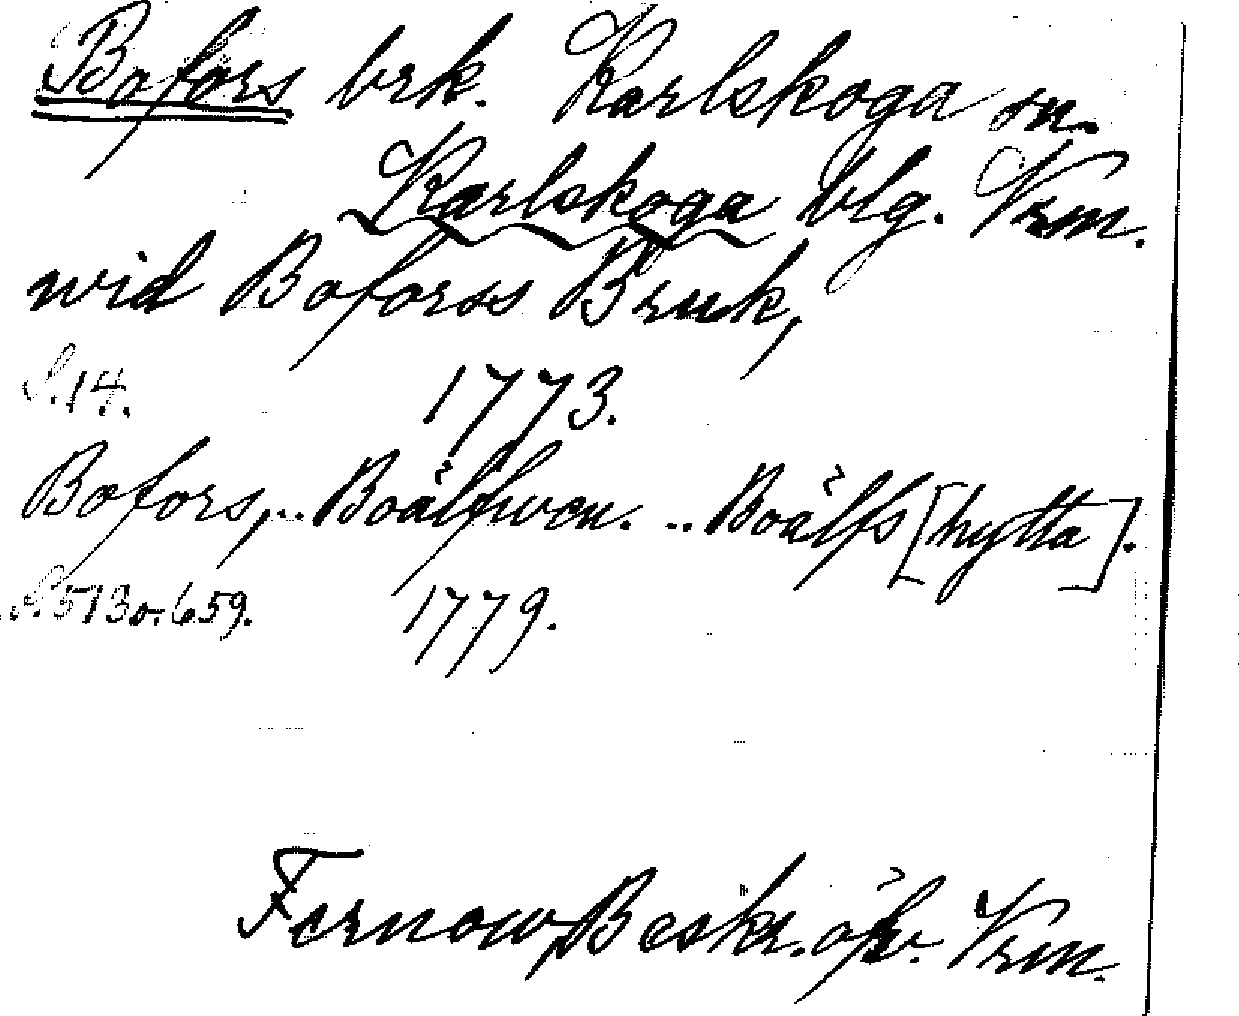 Bofors brk. Karlskoga sn.
Karlskoga blg. Vrm.
wid Boforss Bruk,
S. 14. 1773.
Bofors,.. Boälfwen. .. Boälfs [hytta].
S. 513 o. 659. 1779.
Fernow, Beskr. öfv. Vrm.